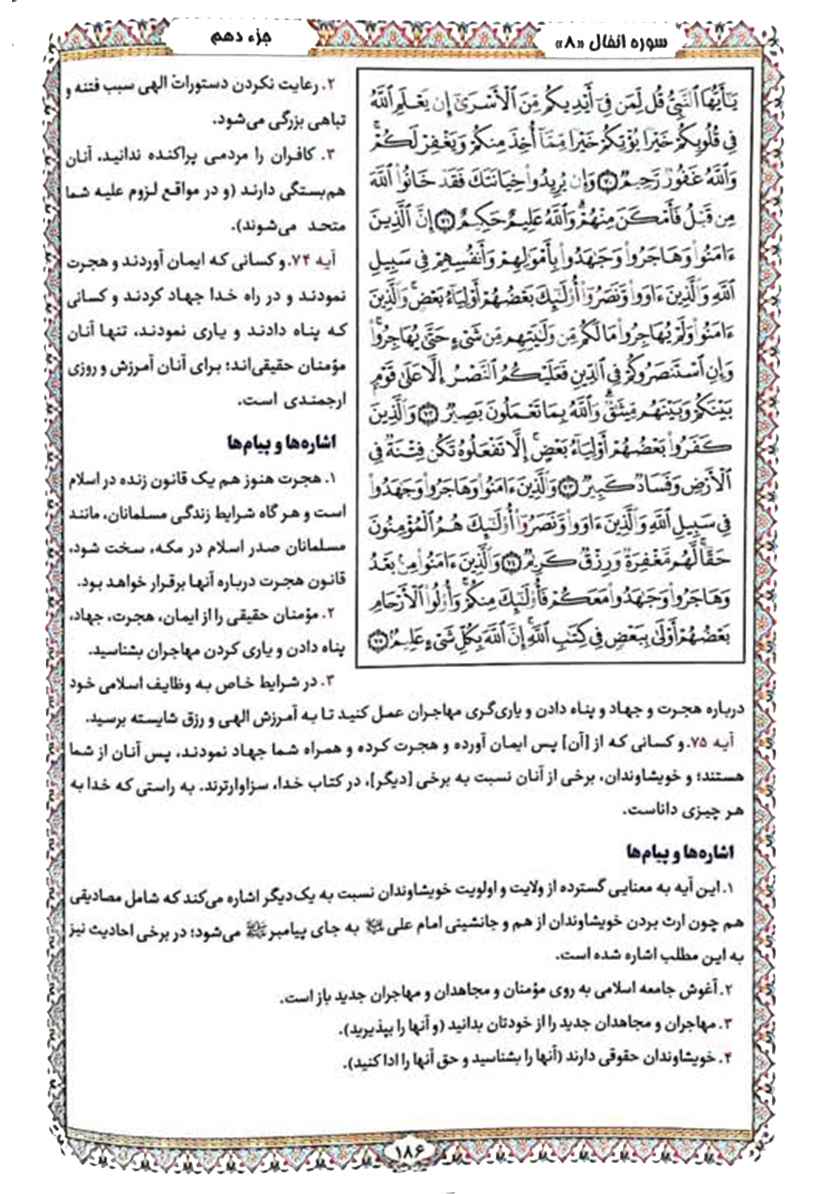 سوره انفال «۸»
جزء دهم
يَـٰٓأَيُّهَا ٱلنَّبِىُّ قُل لِّمَن فِىٓ أَيْدِيكُم مِّنَ ٱلْأَسْرَىٰٓ إِن يَعْلَمِ ٱللَّهُ
فِى قُلُوبِكُمْ خَيْرًا يُؤْتِكُمْ خَيْرًا مِّمَّآ أُخِذَ مِنكُمْ وَيَغْفِرْ لَكُمْ ۗ
وَٱللَّهُ غَفُورٌ رَّحِيمٌ ﴿٧٠﴾ وَإِن يُرِيدُوا۟ خِيَانَتَكَ فَقَدْ خَانُوا۟ ٱللَّهَ
مِن قَبْلُ فَأَمْكَنَ مِنْهُمْ ۗ وَٱللَّهُ عَلِيمٌ حَكِيمٌ ﴿٧١﴾ إِنَّ ٱلَّذِينَ
ءَامَنُوا۟ وَهَاجَرُوا۟ وَجَـٰهَدُوا۟ بِأَمْوَٰلِهِمْ وَأَنفُسِهِمْ فِى سَبِيلِ
ٱللَّهِ وَٱلَّذِينَ ءَاوَوا۟ وَّنَصَرُوٓا۟ أُو۟لَـٰٓئِكَ بَعْضُهُمْ أَوْلِيَآءُ بَعْضٍ ۚ وَٱلَّذِينَ
ءَامَنُوا۟ وَلَمْ يُهَاجِرُوا۟ مَا لَكُم مِّن وَلَـٰيَتِهِم مِّن شَىْءٍ حَتَّىٰ يُهَاجِرُوا۟ ۚ
وَإِنِ ٱسْتَنصَرُوكُمْ فِى ٱلدِّينِ فَعَلَيْكُمُ ٱلنَّصْرُ إِلَّا عَلَىٰ قَوْمٍۭ
بَيْنَكُمْ وَبَيْنَهُم مِّيثَـٰقٌ ۗ وَٱللَّهُ بِمَا تَعْمَلُونَ بَصِيرٌ ﴿٧٢﴾ وَٱلَّذِينَ
كَفَرُوا۟ بَعْضُهُمْ أَوْلِيَآءُ بَعْضٍ ۚ إِلَّا تَفْعَلُوهُ تَكُن فِتْنَةٌ فِى
ٱلْأَرْضِ وَفَسَادٌ كَبِيرٌ ﴿٧٣﴾ وَٱلَّذِينَ ءَامَنُوا۟ وَهَاجَرُوا۟ وَجَـٰهَدُوا۟
فِى سَبِيلِ ٱللَّهِ وَٱلَّذِينَ ءَاوَوا۟ وَّنَصَرُوٓا۟ أُو۟لَـٰٓئِكَ هُمُ ٱلْمُؤْمِنُونَ
حَقًّا ۚ لَّهُم مَّغْفِرَةٌ وَرِزْقٌ كَرِيمٌ ﴿٧٤﴾ وَٱلَّذِينَ ءَامَنُوا۟ مِنۢ بَعْدُ
وَهَاجَرُوا۟ وَجَـٰهَدُوا۟ مَعَكُمْ فَأُو۟لَـٰٓئِكَ مِنكُمْ ۚ وَأُو۟لُوا۟ ٱلْأَرْحَامِ
بَعْضُهُمْ أَوْلَىٰ بِبَعْضٍ فِى كِتَـٰبِ ٱللَّهِ ۗ إِنَّ ٱللَّهَ بِكُلِّ شَىْءٍ عَلِيمٌۢ ﴿٧٥﴾
۲. رعایت نکردن دستورات الهی سبب فتنه و
تباهی بزرگی می‌شود.
۳. کافران را مردمی پراکنده ندانید، آنان
هم‌بستگی دارند (و در مواقع لزوم علیه شما
متحد می‌شوند).
آیه ۷۴. و کسانی که ایمان آوردند و هجرت
نمودند و در راه خدا جهاد کردند و کسانی
که پناه دادند و یاری نمودند، تنها آنان
مؤمنان حقیقی‌اند؛ برای آنان آمرزش و روزی
ارجمندی است.
اشاره‌ها و پیام‌ها
۱. هجرت هنوز هم یک قانون زنده در اسلام
است و هر گاه شرایط زندگی مسلمانان، مانند
مسلمانان صدر اسلام در مکه، سخت شود،
قانون هجرت درباره آنها برقرار خواهد بود.
۲. مؤمنان حقیقی را از ایمان، هجرت، جهاد،
پناه دادن و یاری کردن مهاجران بشناسید.
۳. در شرایط خاص به وظایف اسلامی خود
درباره هجرت و جهاد و پناه دادن و یاری‌گری مهاجران عمل کنید تا به آمرزش الهی و رزق شایسته برسید.
آیه ۷۵. و کسانی که از [آن] پس ایمان آورده و هجرت کرده و همراه شما جهاد نمودند، پس آنان از شما
هستند؛ و خویشاوندان، برخی از آنان نسبت به برخی [دیگر]، در کتاب خدا، سزاوارترند. به راستی که خدا به
هر چیزی داناست.
اشاره‌ها و پیام‌ها
۱. این آیه به معنایی گسترده از ولایت و اولویت خویشاوندان نسبت به یک‌دیگر اشاره می‌کند که شامل مصادیقی
هم چون ارث بردن خویشاوندان از هم و جانشینی امام علی به جای پیامبر ﷺ می‌شود؛ در برخی احادیث نیز
به این مطلب اشاره شده است.
۲. آغوش جامعه اسلامی به روی مؤمنان و مجاهدان و مهاجران جدید باز است.
۳. مهاجران و مجاهدان جدید را از خودتان بدانید (و آنها را بپذیرید).
۴. خویشاوندان حقوقی دارند (آنها را بشناسید و حق آنها را ادا کنید).
۱۸۶